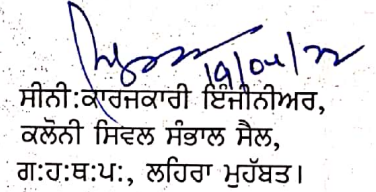 19/04/22
ਸੀਨੀ:ਕਾਰਜਕਾਰੀ ਇੰਜੀਨੀਅਰ,
ਕਲੋਨੀ ਸਿਵਲ ਸੰਭਾਲ ਸੈਲ,
ਗ:ਹ:ਥ:ਪ:, ਲਹਿਰਾ ਮੁਹੱਬਤ।